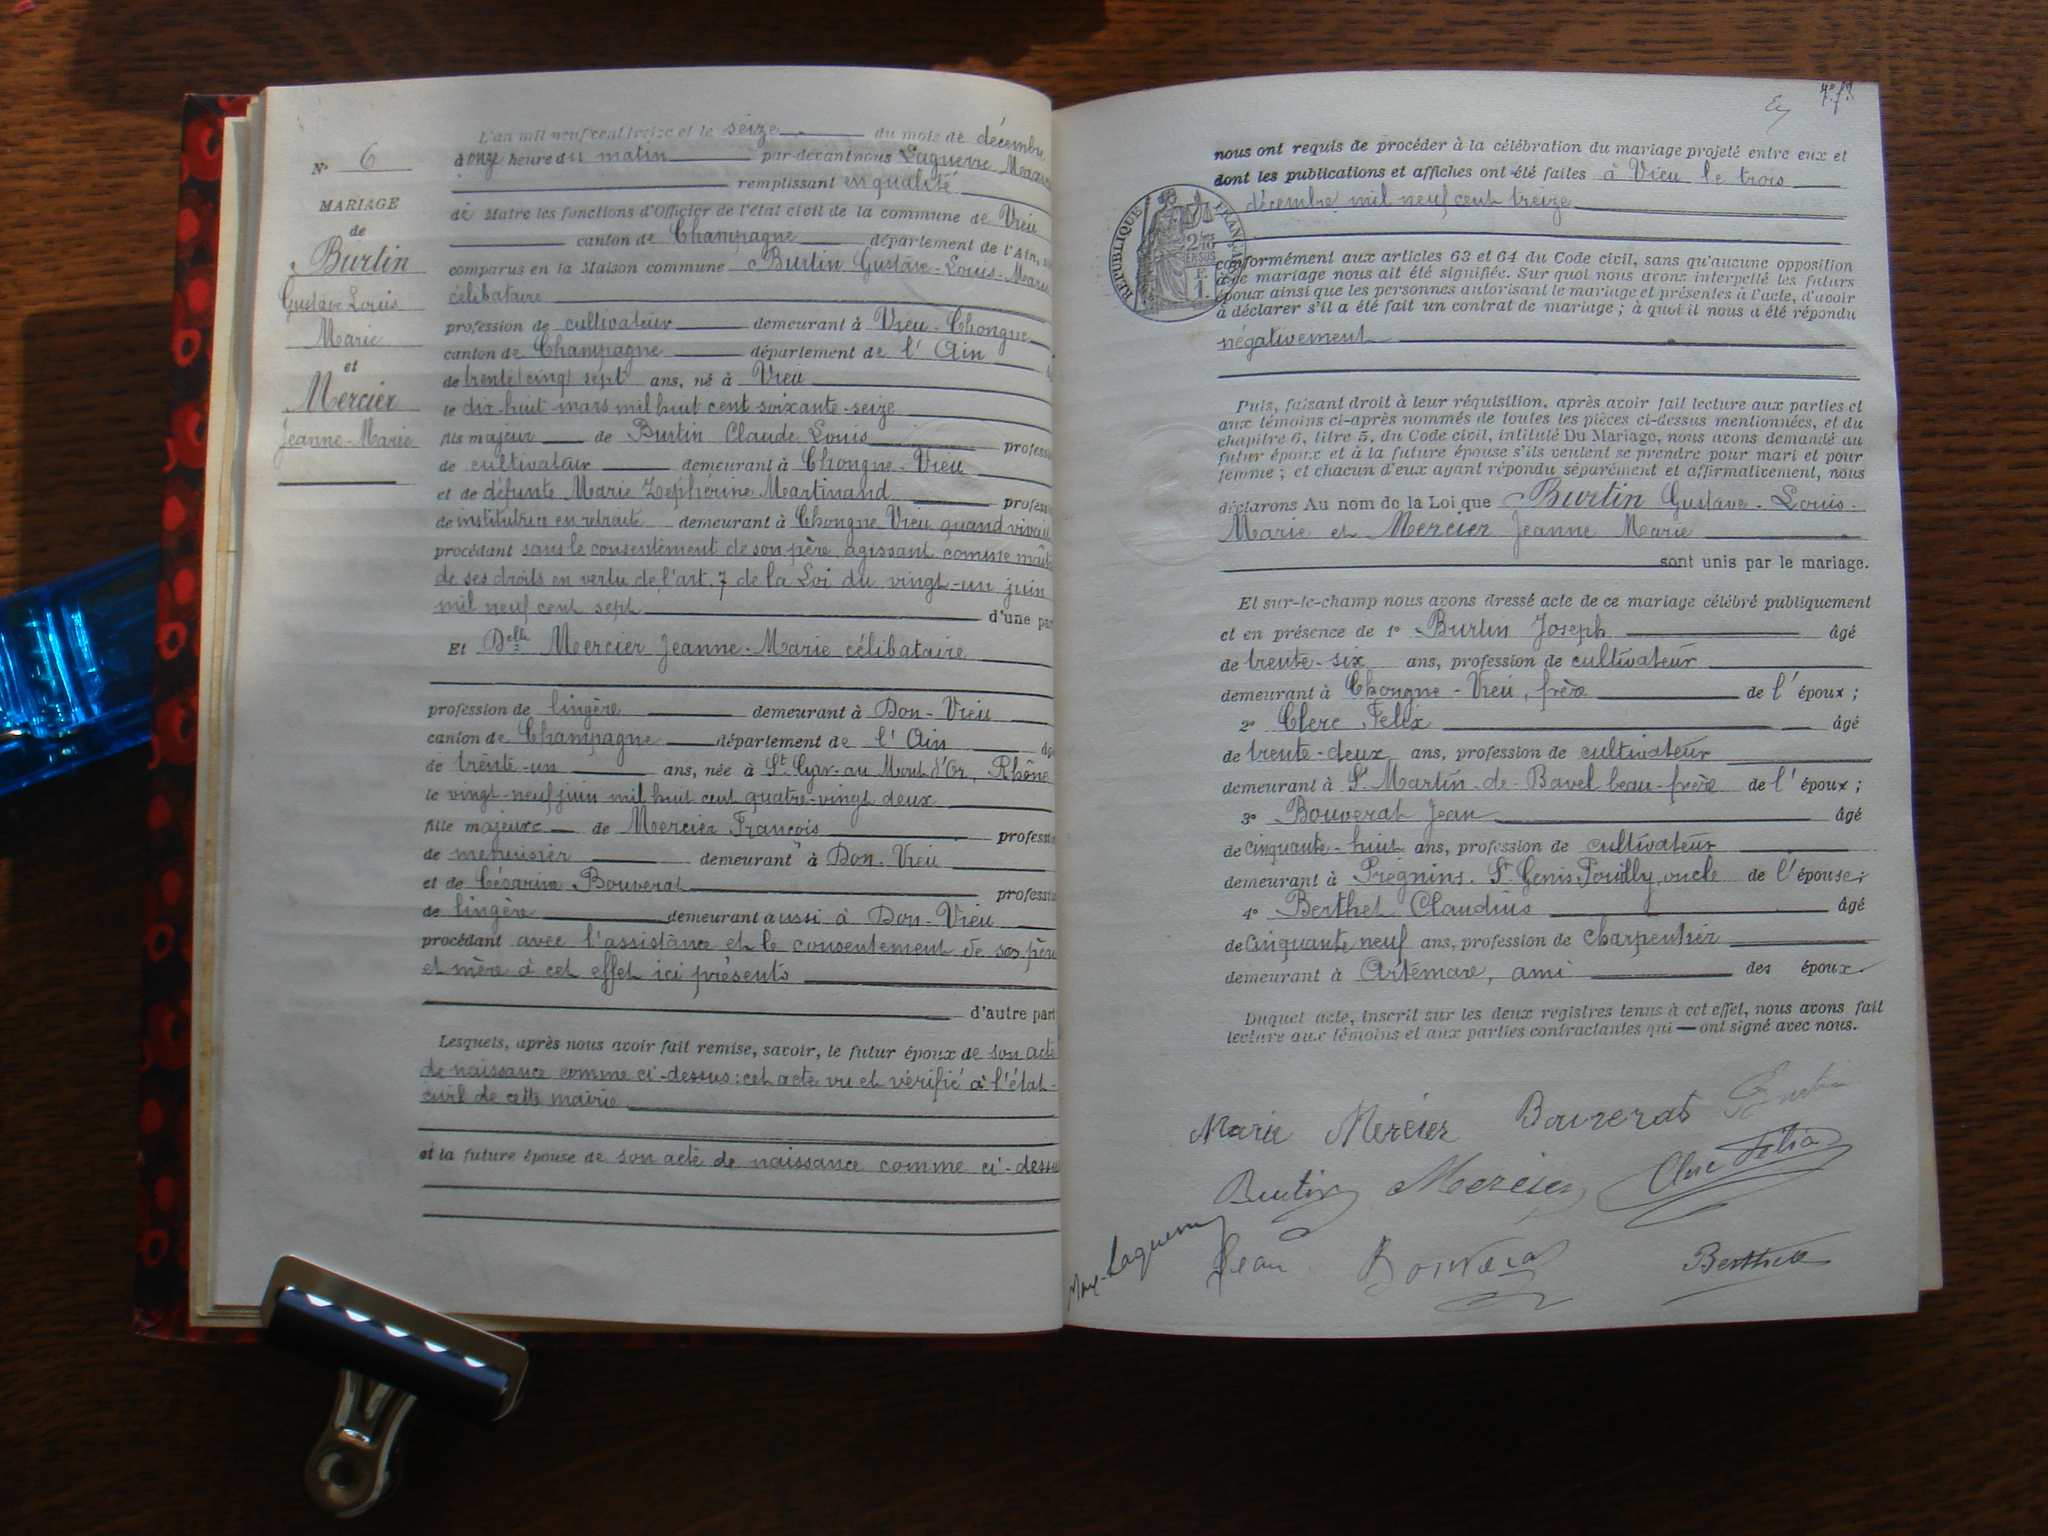 L'an mil neuf cent treize et le seize du mois de décembre
à onze heure du matin par-devant nous Laguerre
remplissant en qualité
de Maire les fonctions d'Officier de l'état civil de la commune de Vieu
canton de Champagne département de l'Ain,
comparus en la Maison commune Burtin Gustave-Louis-Marie
célibataire
profession de cultivateur demeurant à Vieu-Chongne
canton de Champagne département de l'Ain
de trente (cinq) sept ans, né à Vieu
le dix-huit mars mil huit cent soixante-seize
fils majeur de Burtin Claude Louis profess
de cultivateur demeurant à Chongne-Vieu
et de défunte Marie Zéphérine Martinand profess
de institutrice en retraite demeurant à Chongne Vieu quand vivait
procédant sans le consentement de son père agissant comme maître
de ses droits en vertu de l'art. 7 de la Loi du vingt-un juin
mil neuf cent sept d'une par
Et Delle Mercier Jeanne-Marie célibataire
profession de lingère demeurant à Don-Vieu
canton de Champagne département de l'Ain
de trente-un ans, née à St Cyr-au Mont d'Or, Rhône
le vingt-neuf juin mil huit cent quatre-vingt deux
fille majeure de Mercier François professi
de menuisier demeurant à Don-Vieu
et de Césarine Bouverat professi
de lingère demeurant aussi à Don-Vieu
procédant avec l'assistance et le consentement de ses père
et mère à cet effet ici présents
d'autre part
Lesquels, après nous avoir fait remise, savoir, le futur époux de son acte
de naissance comme ci-dessus: cet acte vu et vérifié à l'état-
civil de cette mairie
et la future épouse de son acte de naissance comme ci-dessu
No 6
MARIAGE
de
Burtin
Gustave Louis
Marie
et
Mercier
Jeanne-Marie
nous ont requis de procéder à la célébration du mariage projeté entre eux et
dont les publications et affiches ont été faites à Vieu le trois
décembre mil neuf cent treize
RÉPUBLIQUE FRANÇAISE
conformément aux articles 63 et 64 du Code civil, sans qu'aucune opposition
à ce mariage nous ait été signifiée. Sur quoi nous avons interpellé les futurs
époux ainsi que les personnes autorisant le mariage et présentes à l'acte, d'avoir
à déclarer s'il a été fait un contrat de mariage ; à quoi il nous a été répondu
négativement
Puis, faisant droit à leur réquisition, après avoir fait lecture aux parties et
aux témoins ci-après nommés de toutes les pièces ci-dessus mentionnées, et du
chapitre 6, titre 5, du Code civil, intitulé Du Mariage, nous avons demandé au
futur époux et à la future épouse s'ils veulent se prendre pour mari et pour
femme ; et chacun d'eux ayant répondu séparément et affirmativement, nous
déclarons Au nom de la Loi que Burtin Gustave-Louis-
Marie et Mercier Jeanne Marie
sont unis par le mariage.
Et sur-le-champ nous avons dressé acte de ce mariage célébré publiquement
et en présence de 1o Burtin Joseph âgé
de trente-six ans, profession de cultivateur
demeurant à Chongne-Vieu, frère de l'époux ;
2o Clerc Felix âgé
de trente-deux ans, profession de cultivateur
demeurant à St Martin-de-Bavel beau-frère de l'époux ;
3o Bouverat Jean âgé
de cinquante-huit ans, profession de cultivateur
demeurant à Prégnins. St Genis Pouilly, oncle de l'épouse ;
4o Berthet Claudius âgé
de cinquante neuf ans, profession de charpentier
demeurant à Artemare, ami des époux
Duquel acte, inscrit sur les deux registres tenus à cet effet, nous avons fait
lecture aux témoins et aux parties contractantes qui — ont signé avec nous.
Marie Mercier Bouverat Burtin
Burtin Mercier Clerc Félix
Laguerre Jean Bouverat Berthet